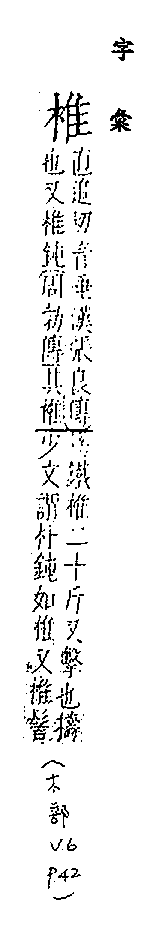 字彙
椎
直追切音垂漢張良傳爲鐵椎二十斤又擊也擣
也又椎鈍周勃傳其椎少文謂朴鈍如椎又椎髻
(木部
V.6
P.42)